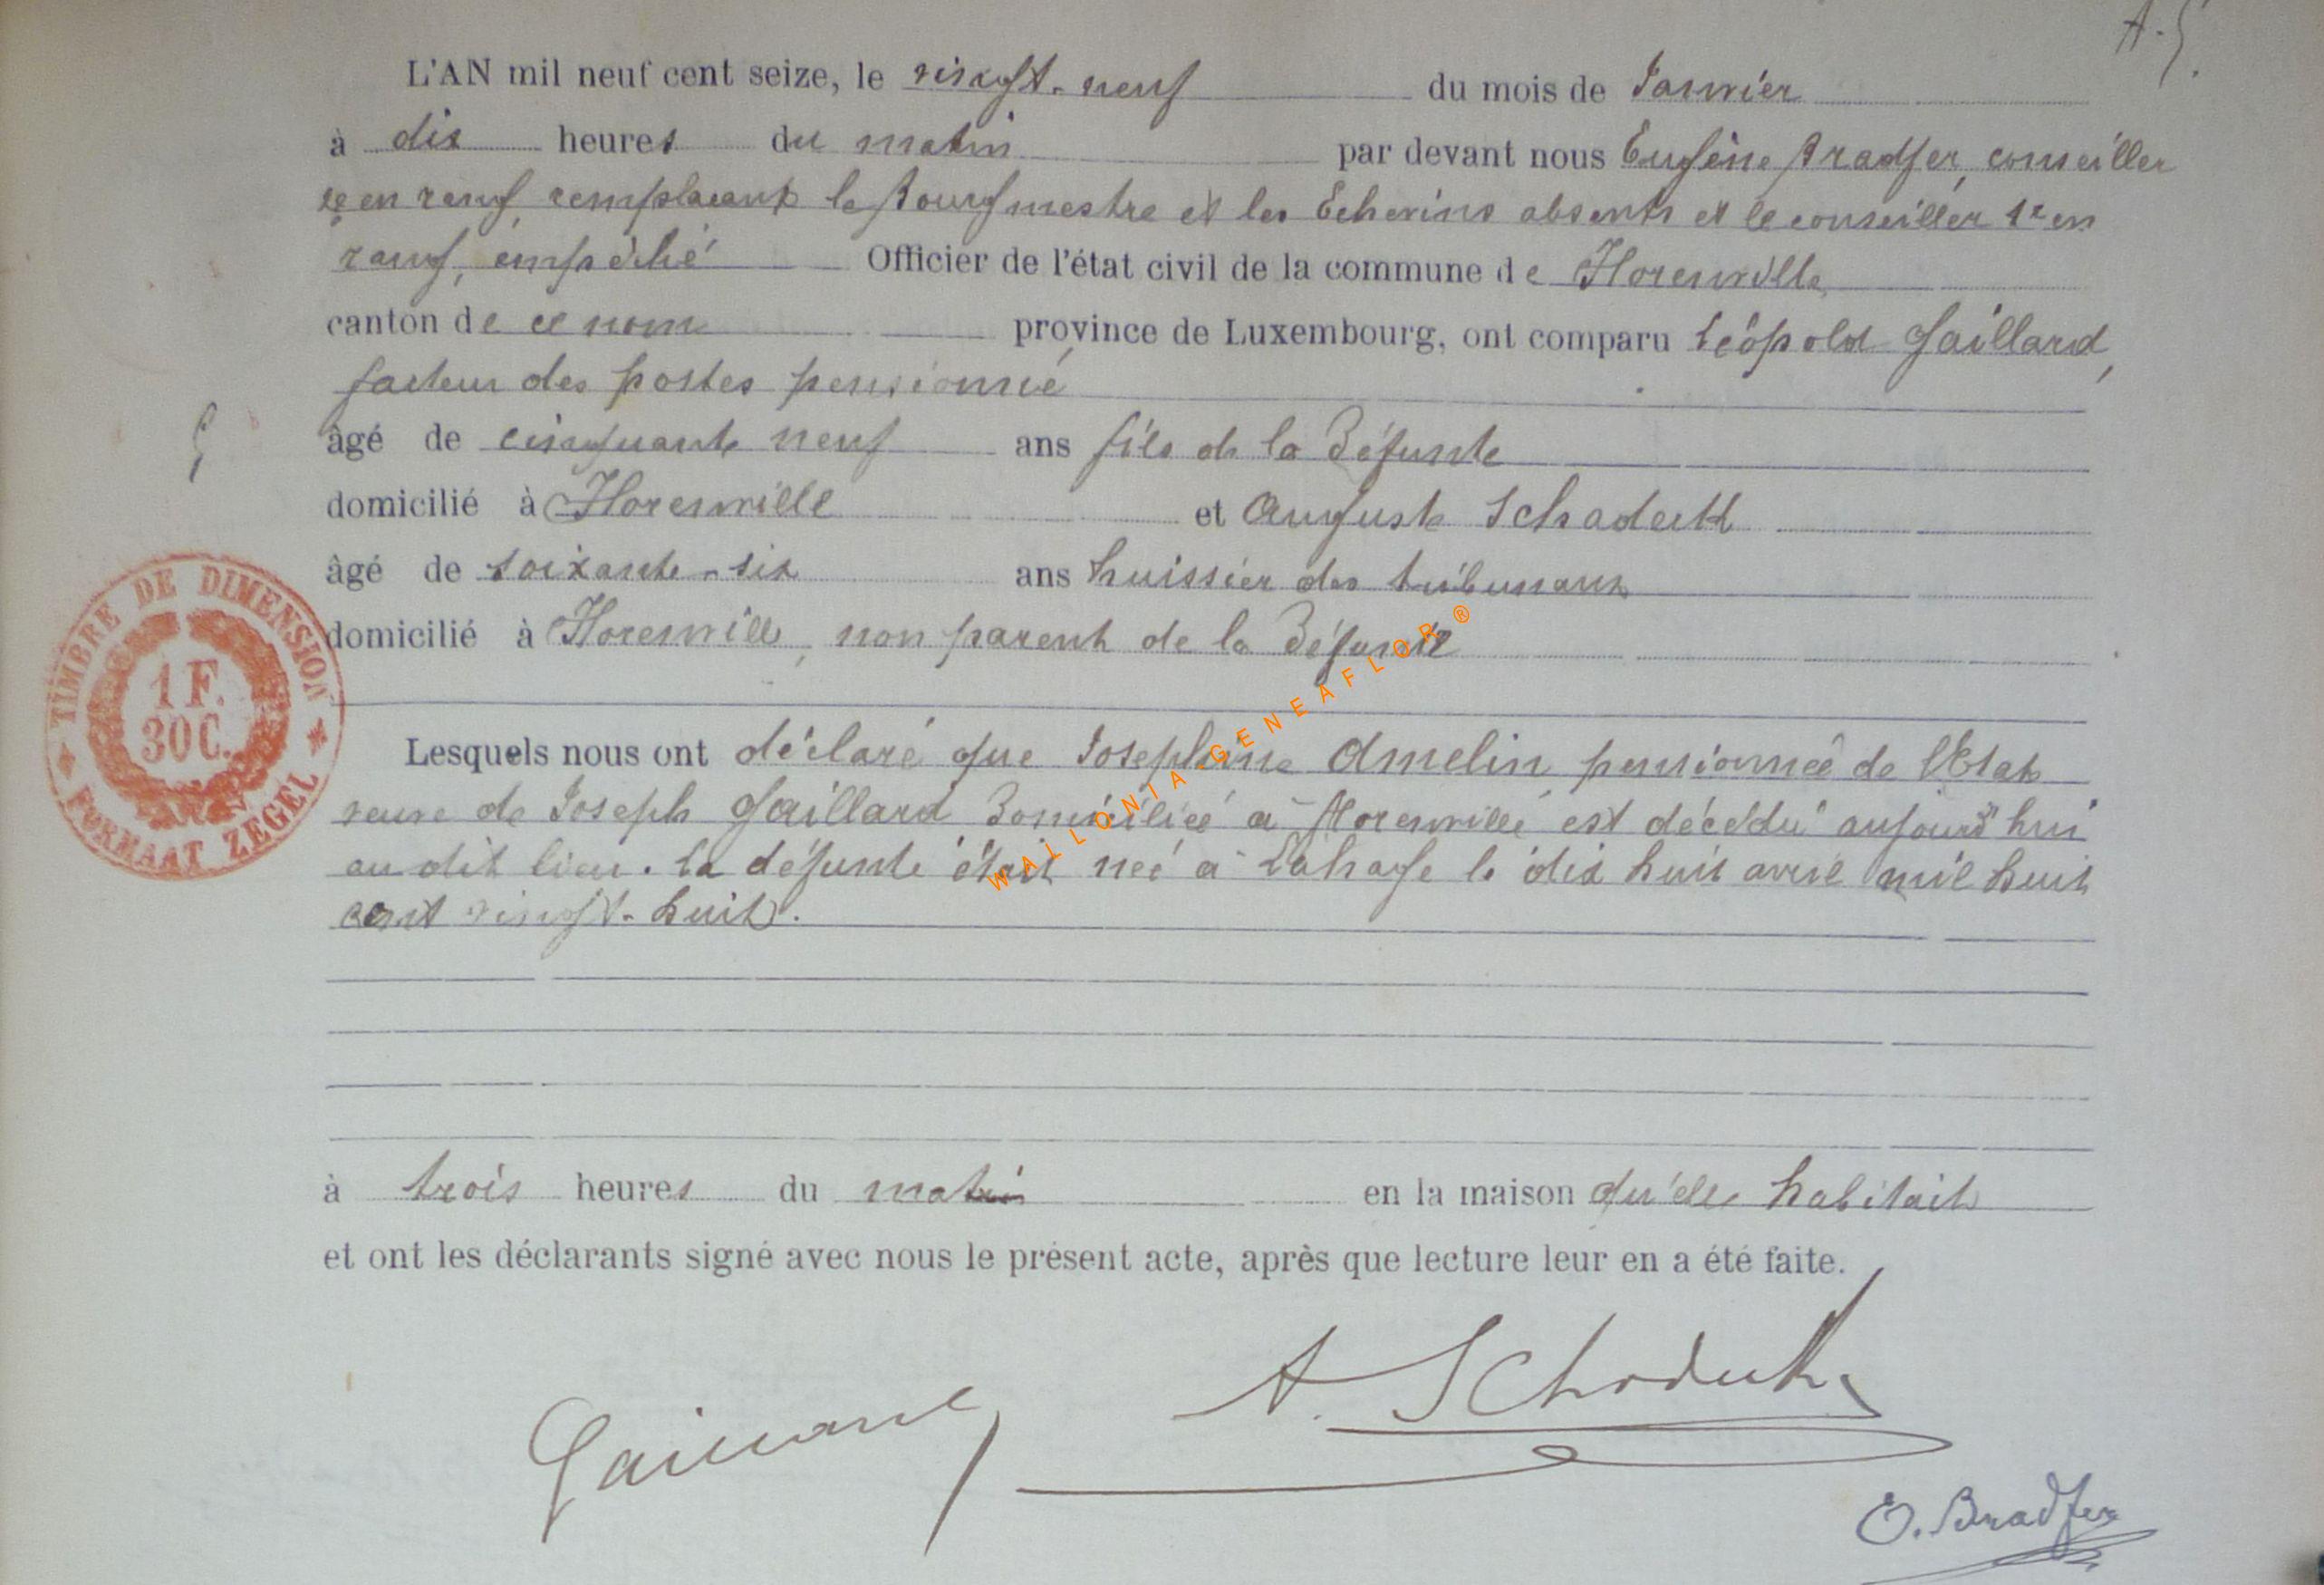 A.S.
L'AN mil neuf cent seize, le vingt-neuf du mois de Janvier
à dix heures du matin par devant nous Eugène Bradfer, conseiller
2e en rang, remplacant le Bourgmestre et les Echevins absents et le conseiller 1r en
rang, émpêché Officier de l'état civil de la commune de Florenville
canton de ce nom province de Luxembourg, ont comparu Léopold Gaillard,
facteur des postes pensionné
âgé de cinquante neuf ans fils de la Défunte
domicilié à Florenville et Auguste Schadeck
âgé de soixante-six ans huissier des tribunaux
domicilié à Florenville, non parent de la Défunte
TIMBRE DE DIMENSION
1 F.
30 C.
FORMAAT ZEGEL
WALLONIA-GENEAFLOR®
Lesquels nous ont déclaré que Joséphine Amelin, pensionnée de l'Etat
veuve de Joseph Gaillard Domiciliée à Florenville est décédée aujourd'hui
au dit lieu. La défunte était née à Lahage le dix huit avril mil huit
cent vingt-huit.
à trois heures du matin en la maison qu'elle habitait
et ont les déclarants signé avec nous le présent acte, après que lecture leur en a été faite.
Gaillard
A. Schadeck
E. Bradfer